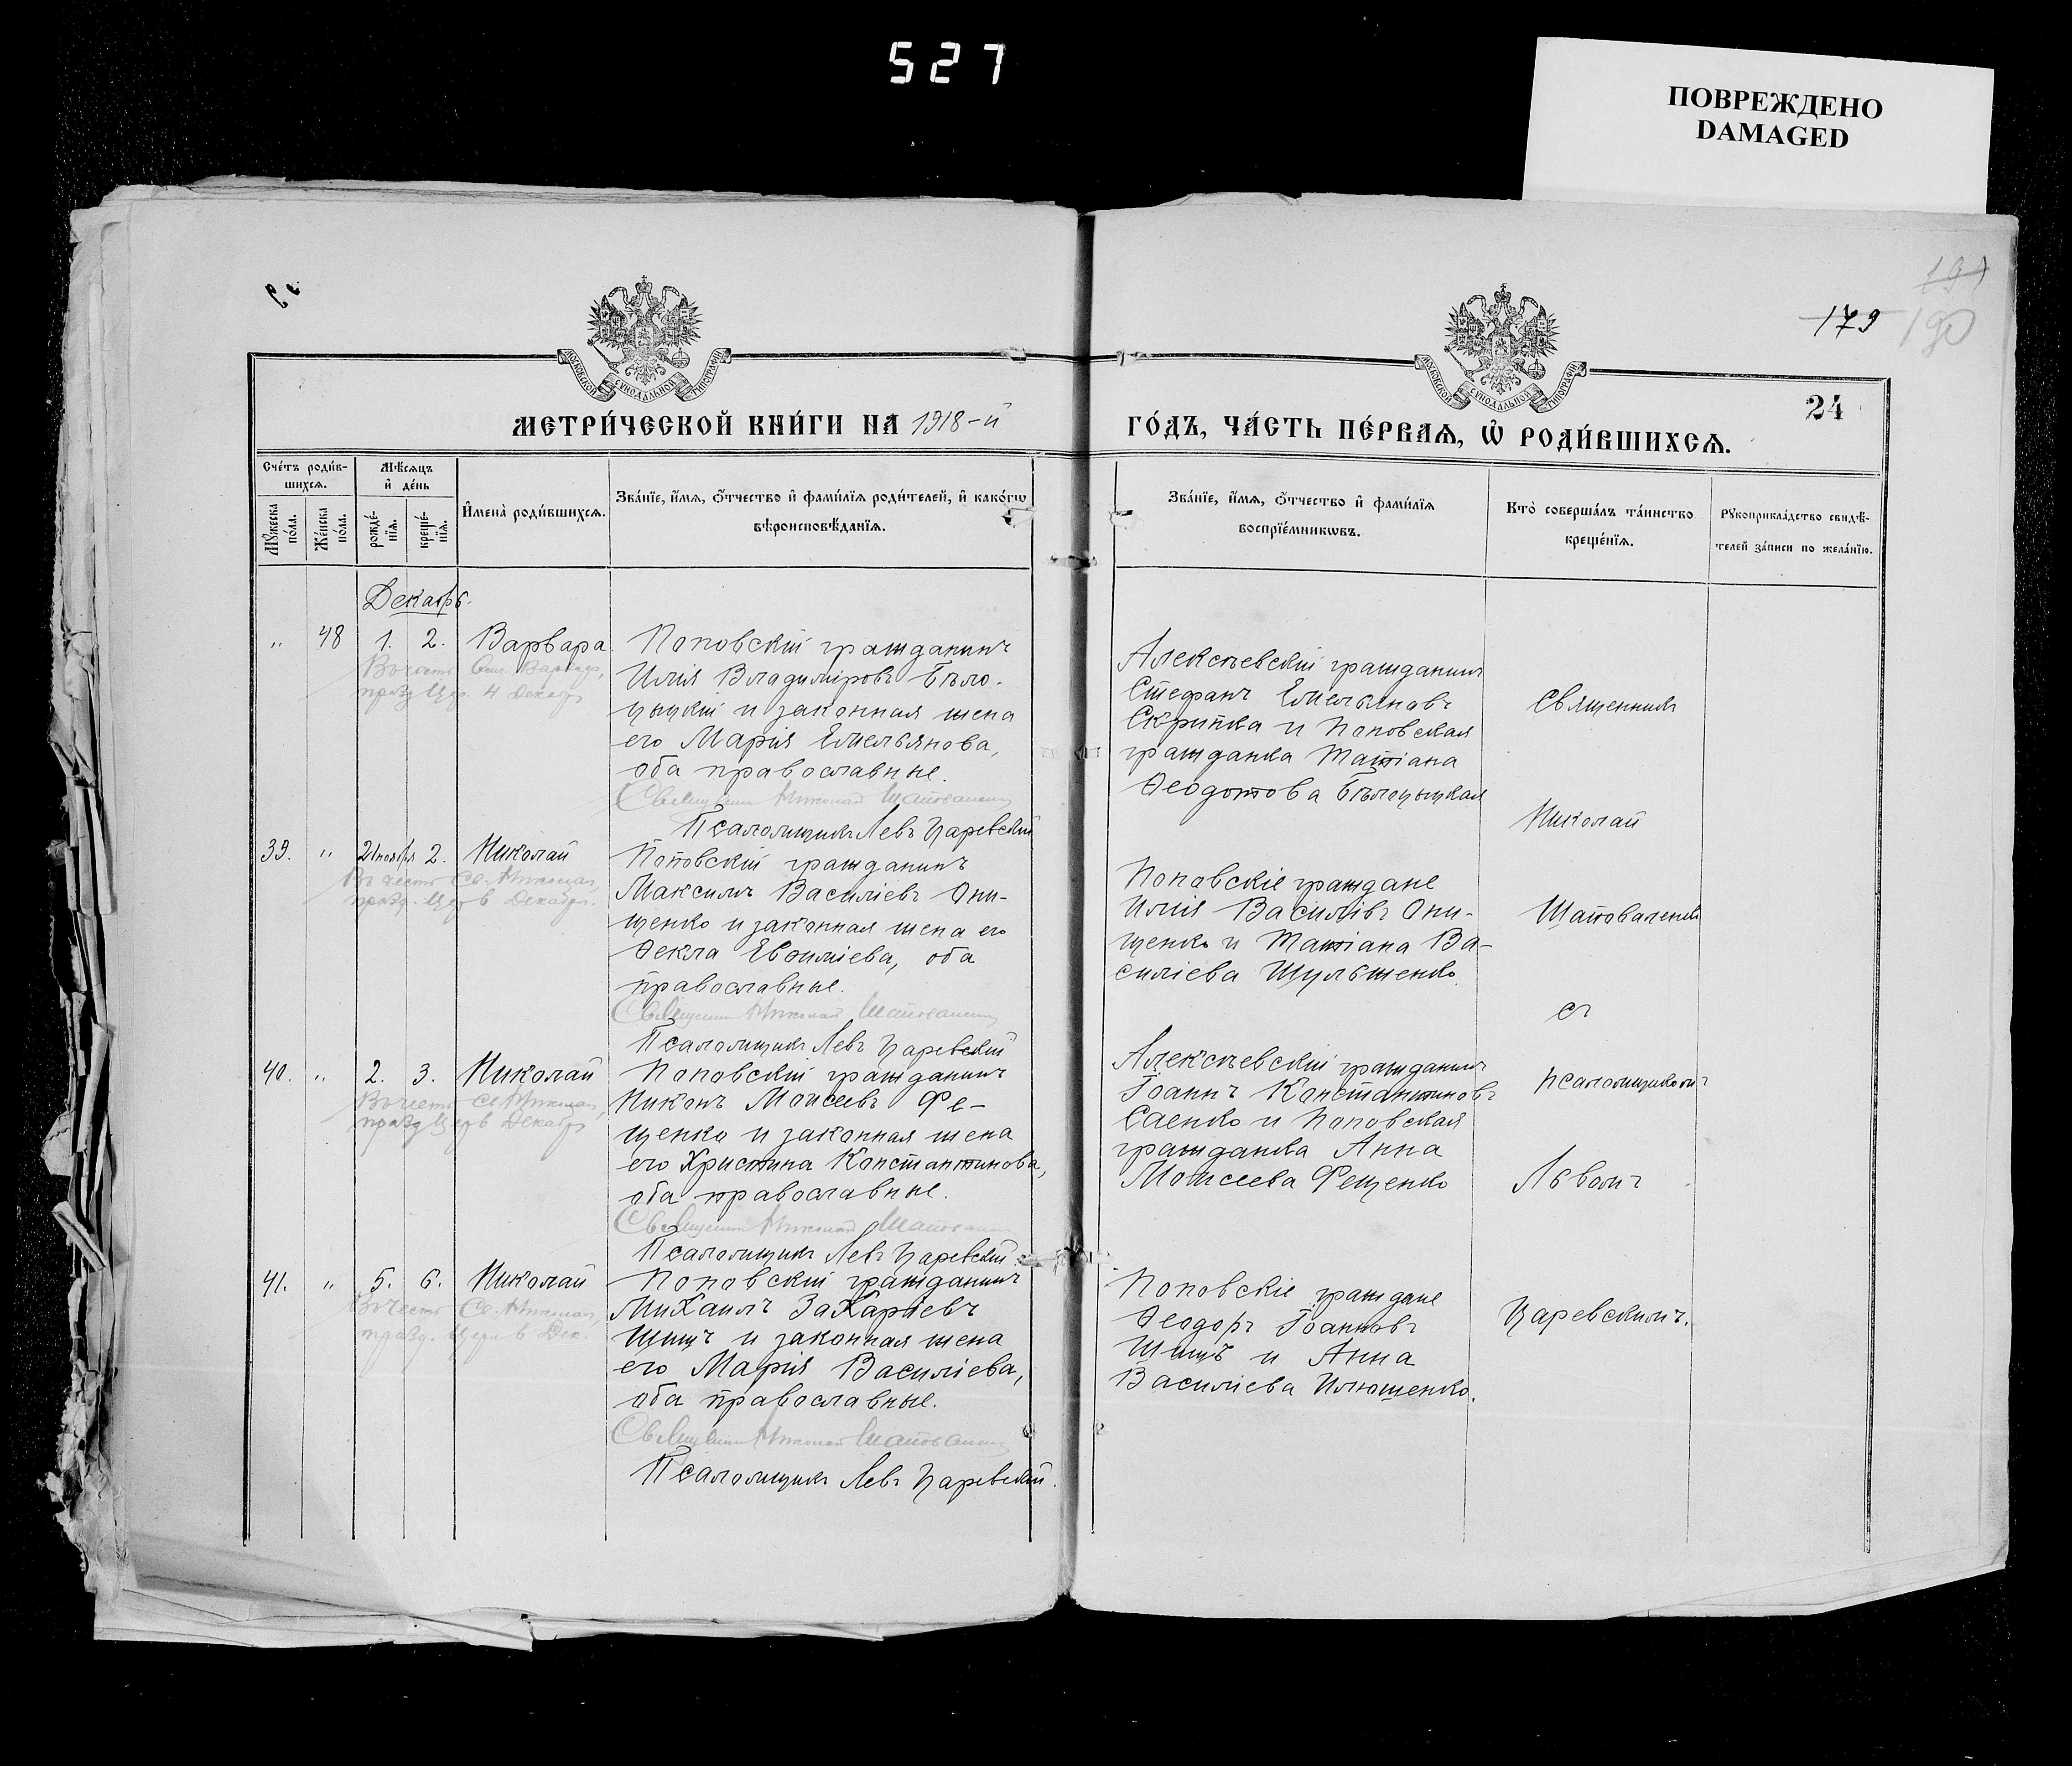 527
ПОВРЕЖДЕНО
DAMAGED
179
190
24
МЕТРИ́ЧЕСКОЙ КНИ́ГИ НА 1918-й
ГО́ДЪ, ЧА́СТЬ ПЕ́РВАѦ, Ѡ҆ РОДИ́ВШИХСѦ.
Сче́тъ роди́в-
шихсѧ.
Мѣ́сѧцъ
и҆ де́нь
Мꙋ́жеска по́ла.
Же́нска по́ла.
рожде́-нїѧ.
креще́-нїѧ.
И҆мена̀ роди́вшихсѧ.
Зва́нїе, и҆́мѧ, ѻ҆́тчество и҆ фами́лїѧ роди́телей, и҆ како́гѡ
вѣроисповѣ́данїѧ.
Зва́нїе, и҆́мѧ, ѻ҆́тчество и҆ фами́лїѧ
воспрїе́мникѡвъ.
Кто̀ соверша́лъ та́инство
креще́нїѧ.
Рꙋкоприкла́дство свидѣ́-
телей за́писи по жела́нїю.
Декабрь.
" 48 1. 2. Варвара
Въ честь Вмч. Варвары,
празд. Цер. 4 Декабр
Поповскій гражданинъ
Илія Владиміровъ Бѣло-
цыцкій и законная жена
его Марія Емельянова,
оба православные.
Священникъ Николай Шаповаленко
Псаломщикъ Левъ Царевскій
Алексѣевскій гражданинъ
Стефанъ Емельяновъ
Скрипка и Поповская
гражданка Татіана
Ѳеодотова Бѣлоцыцкая
39. " 21 ноября 2. Николай
Въ честь Св. Николая,
празд. Цер 6 Декабр.
Поповскій гражданинъ
Максимъ Василіевъ Они-
щенко и законная жена его
Ѳекла Евѳиміева, оба
православные.
Священникъ Николай Шаповаленко
Псаломщикъ Левъ Царевскій
Поповскіе граждане
Илія Василіевъ Они-
щенко и Татіана Ва-
силіева Шульженко.
40. " 2. 3. Николай
Въ честь Св. Николая,
празд Цер 6 Декабр
Поповскій гражданинъ
Никонъ Моисеевъ Фе-
щенко и законная жена
его Христина Константинова,
оба православные.
Священникъ Николай Шаповаленко
Псаломщикъ Левъ Царевскій.
Алексѣевскій гражданинъ
Іоаннъ Константиновъ
Саенко и Поповская
гражданка Анна
Моисеева Фещенко
41. " 5. 6. Николай
Въ честь Св. Николая,
празд. Цер 6 Дек.
Поповскій гражданинъ
Михаилъ Захаріевъ
Шишъ и законная жена
его Марія Василіева,
оба православные.
Священникъ Николай Шаповаленко
Псаломщикъ Левъ Царевскій.
Поповскіе граждане
Ѳеодоръ Іоанновъ
Шишъ и Анна
Василіева Илюшенко.
Священникъ
Николай
Шаповаленко
съ
псаломщикомъ
Львомъ
Царевскимъ.